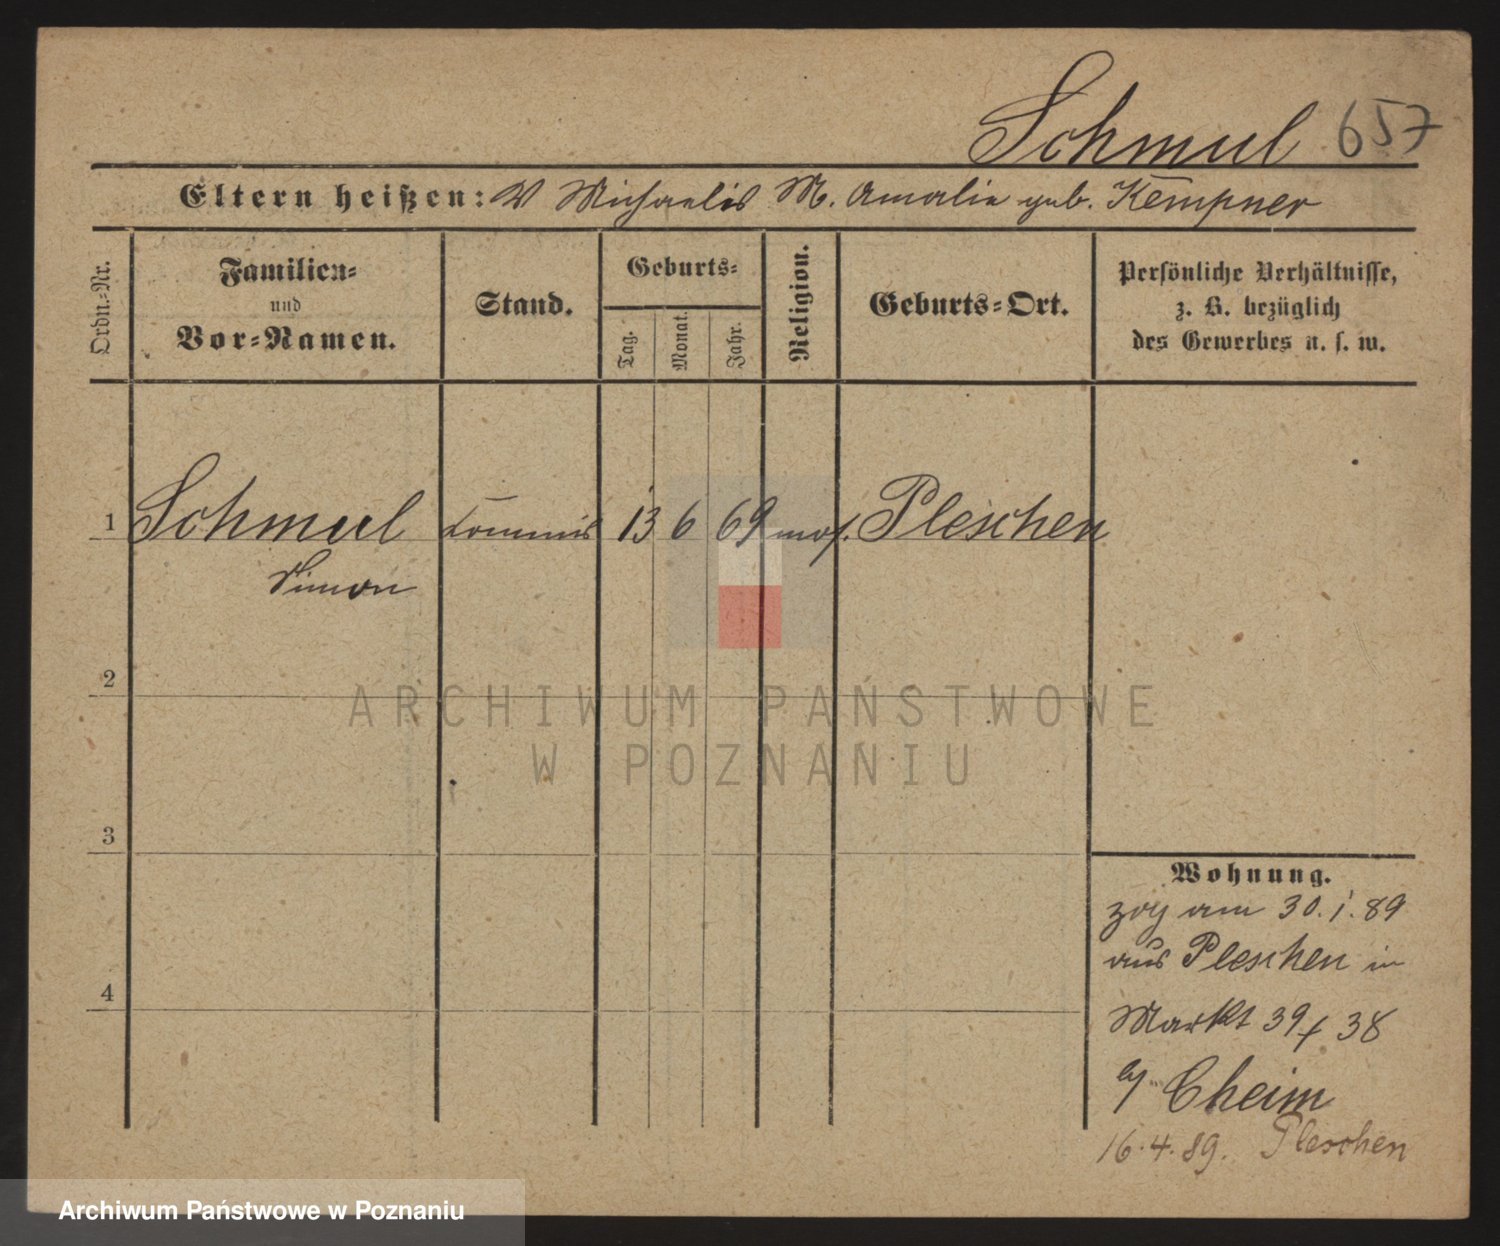 Schmul 657
Eltern heißen: V Michaelis M. Amalie geb. Kempner
Ordn.-Nr.
Familien-
und
Vor-Namen.
Stand.
Geburts-
Tag.
Monat.
Jahr.
Religion.
Geburts-Ort.
Persönliche Verhältnisse,
z. B. bezüglich
des Gewerbes u. s. w.
1 Schmul Commis 13 6 69 mos. Pleschen
Simon
2
ARCHIWUM PAŃSTWOWE
W POZNANIU
3
4
Wohnung.
zog am 30.1.89
aus Pleschen in
Markt 39 38
Cheim
16.4.89. Pleschen
Archiwum Państwowe w Poznaniu